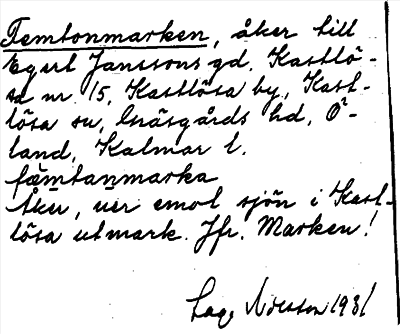 Femtonmarken, åker till
Egert Janssons gd. Kastlö-
sa nr. 15, Kastlösa by, Kast-
lösa sn, Gräsgårds hd, Ö-
land, Kalmar l.
fämtanmarka
Åker, ner emot sjön i Kast-
lösa utmark. Jfr. Marken!
1931